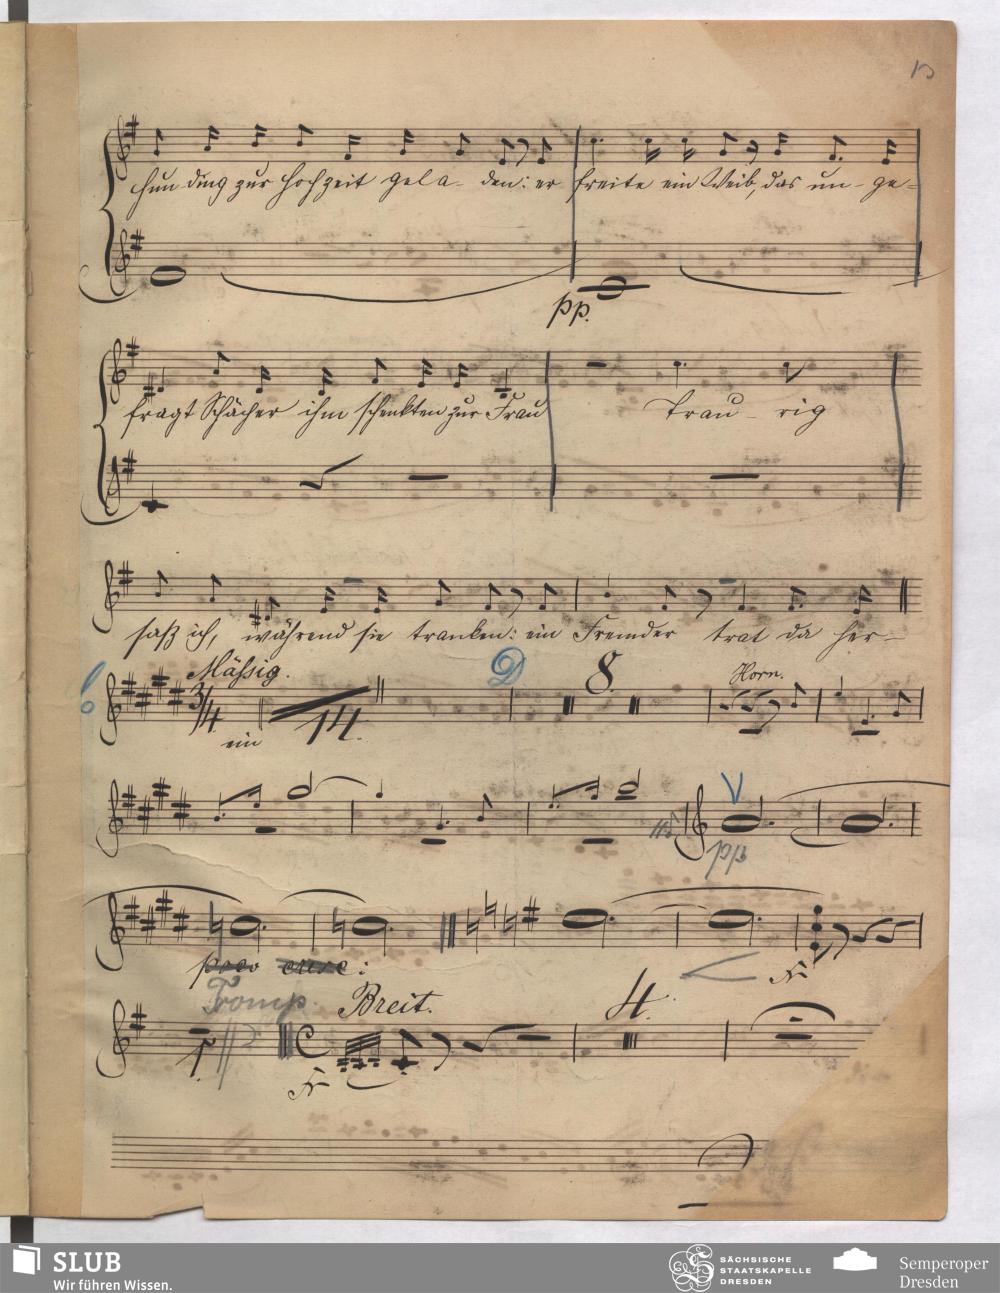 13
hunding zur Hochzeit gela-den: er freite ein Weib, das un-ge-
pp.
fragt Schächer ihm schenkten zur Frau Trau-rig
saß ich, während sie tranken: ein Fremder trat da her-
Mässig. D 8. Horn.
3/4 ein 14.
pp
poco cresc:
Tromp. Breit. 4.
1.
SLUB
Wir führen Wissen.
SÄCHSISCHE
STAATSKAPELLE
DRESDEN
Semperoper
Dresden